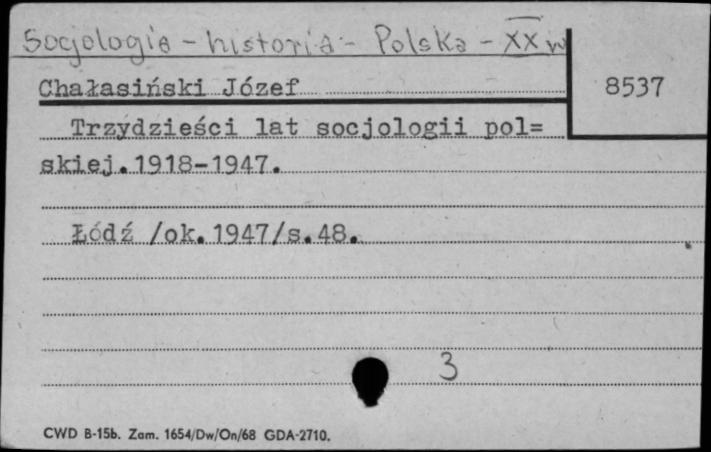 Socjologia - historia - Polska - XX w
Chałasiński Józef
8537
Trzydzieści lat socjologii pol=
skiej.1918-1947.
Łódź /ok.1947/s.48.
3
CWD B-15b. Zam. 1654/Dw/On/68 GDA-2710.